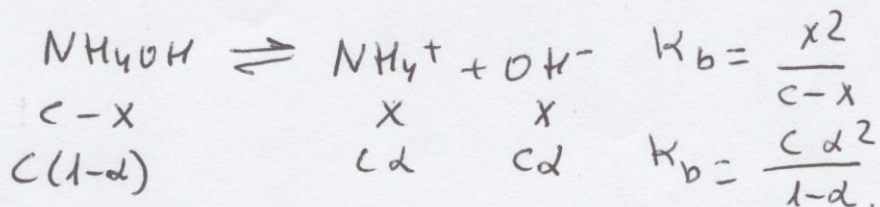 NH₄OH ⇌ NH₄⁺ + OH⁻ K_b = x²/(c-x)
c-x x x
c(1-α) cα cα K_b = cα²/(1-α).